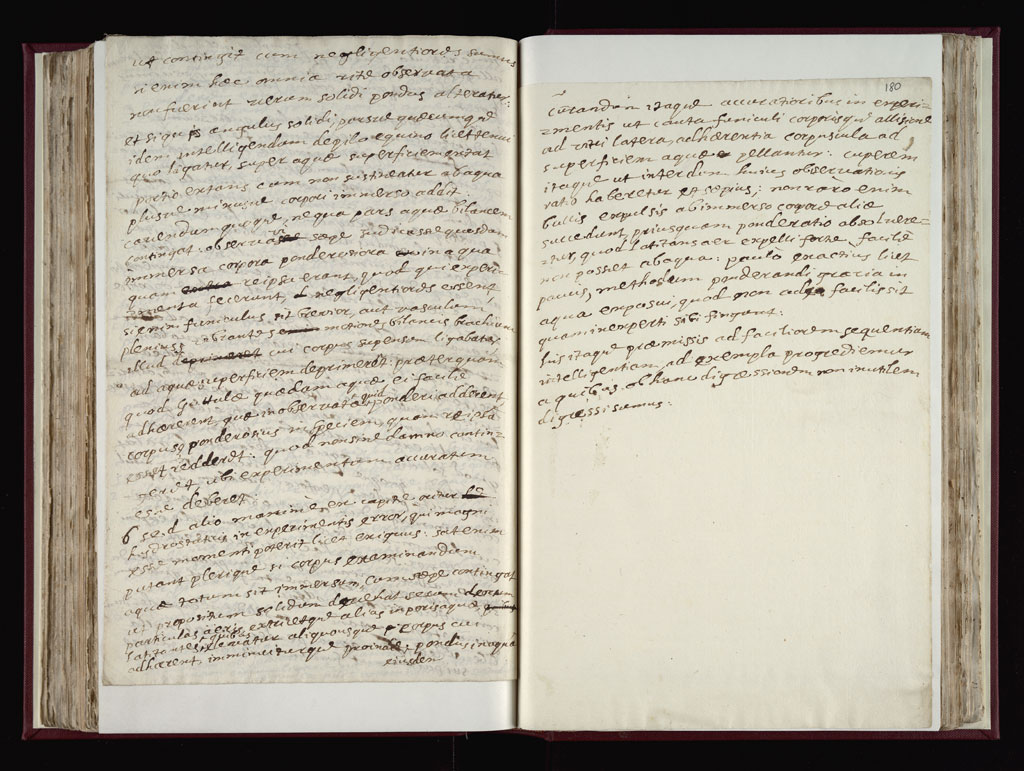 ut contingit cum negligentiores sumus
ni enim hæc omnia rite observata
non fuerint verum solidi pondus alteratur:
et siquis angulus solidi, parsue quæcumque
idem intelligendum de pilo equino licet tenui
quo ligatur, super aquæ superficiem
portio extans cum non sustineatur ab aqua
plusue minusue corpori immerso addit.
cavendum quoque, ne qua pars aquæ bilancem
contingat: observavi sæpe iudicasse quosdam
immersa corpora ponderosiora in aqua
quam reipsa erant, quod qui experi-
menta fecerunt, negligentiores essent
si enim funiculus sit brevior, aut vasculum
plenius vibrantes motiones bilancis brachium
illud cui corpus suspensum ligabatur
ad aquæ superficiem deprimeret præterquam
quod guttulæ quædam aquæ ei facile
adhærent, quæ inobservatæ quid ponderi adderent
corpusque ponderosius in speciem quam reipsa
esset redderet: quod non sine damno contin-
geret, ubi experimentum accuratum
esse deberet
6 sed alio maxime ex capite oritur
hydrostaticis in experimentis error, qui magni
esse momenti poterit licet exiguus: sat enim
putant plerique si corpus examinandum
aquæ totum sit immersum, cum sæpe contingat
ut propositum solidum secum
particulas aeris extrietque alias in poris aquæ
latitantes, quibus elevatur aliquousque corpus cum
adhærent, imminuiturque proinde pondus in aqua
eiusdem
180
curandum itaque accuratioribus in experi-
-mentis ut cauta funiculi corporisque allisione
ad vitri latera, adhærentia corpuscula ad
superficiem aquæ pellantur: cuperem
itaque ut interdum huius observationis
ratio haberetur et sepius; non raro enim
bullis expulsis ab immerso corpore aliæ
succedunt, priusquam ponderatio absolvere-
-tur, quod latitans aer expelli forte facile
non posset ab aqua: paulo exactius licet
paucis, methodum ponderandi gravia in
aqua exposui, quod non adeo facilis sit
quam inexperti sibi fingunt:
his itaque præmissis ad faciliorem sequentium
intelligentiam, ad exempla progrediemur
a quibus ob hanc digressionem non inutilem
digressi sumus: